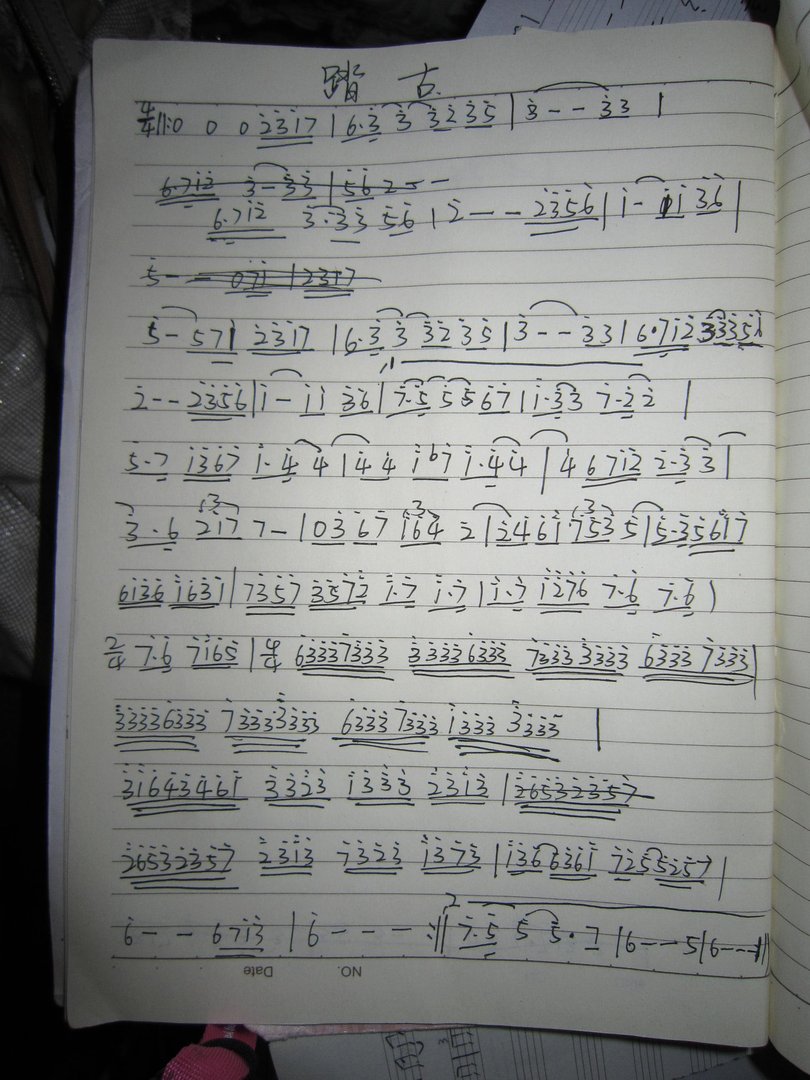 踏古
4/4 ‖: 0 0 0 2317 | 6·3 3 32 35 | 3 - - 33 |
6·712 3 - 33 | 56 2 - -
6·712 3·33 56 | 2 - - 2356 | 1 - 11 36 |
5 - - 071 | 2357
5 - 571 2317 | 6·3 3 32 35 | 3 - - 33 | 6·712 33351
1
2 - - 2356 | 1 - 11 36 | 7·5 5 5 67 | 1·33 7·22 |
5·7 1367 1·4 4 | 44 1b7 1·44 | 4 6712 2·3 3 |
3·6 217 7 - | 03 67 164 2 | 2461·753 5 | 5·35617
3 3 3
6136 1631 | 7357 3572 1·7 1·7 | 1·7 1276 7·6 7·6 |
2/4 7·6 7165 | 4/4 63337333 33336333 73333333 63337333 |
33336333 73333333 63337333 13333333 |
31643461 3323 1333 2313 | 26532357
26532357 2313 7323 1373 | 1366361 7255257 |
2
6 - - 6713 | 6 - - - :‖ 7·5 5 5·7 | 6 - - - 5 | 6 - - - ‖
NO.
Date